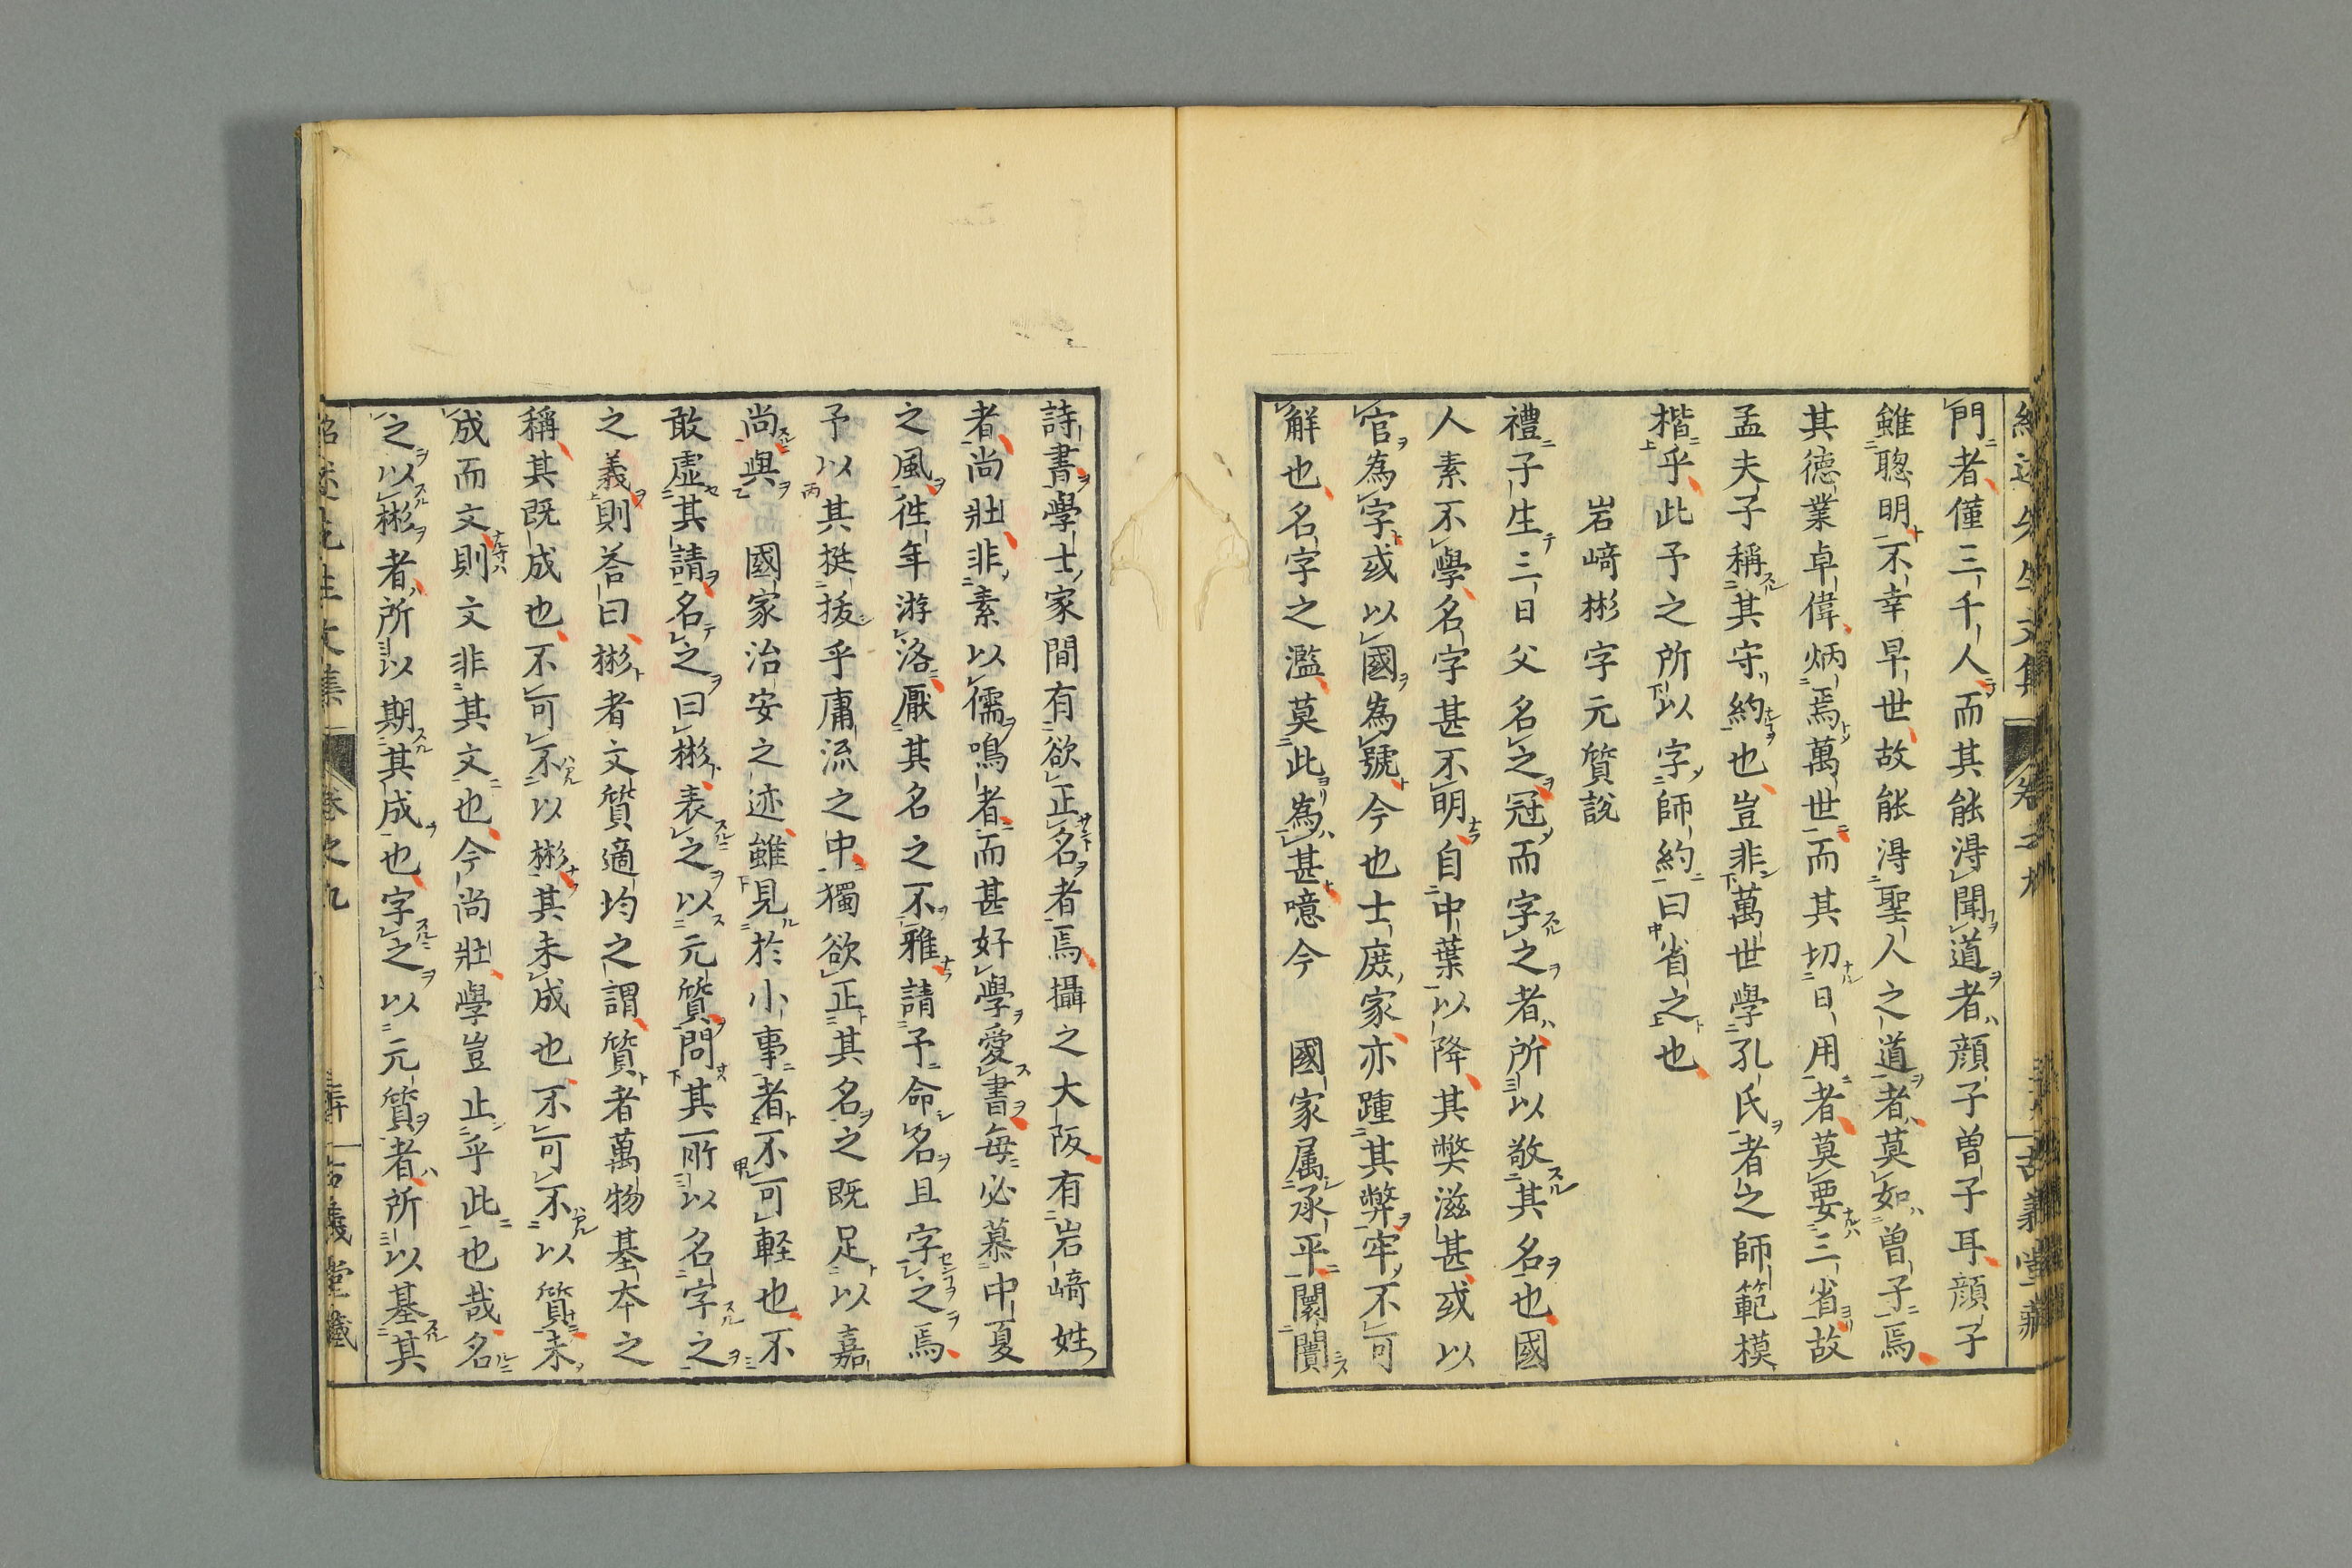 門者僅三千人而其能得聞道者顔子曽子耳顔子
雖聰明不幸早世故能得聖人之道者莫如曽子焉
其徳業卓偉炳焉萬世而其切日用者莫要三省故
孟夫子稱其守約也豈非萬世學孔氏者之師範模
楷乎此予之所以字師約曰省之也
岩﨑彬字元質說
禮子生三日父名之冠而字之者所以敬其名也國
人素不學名字甚不明自中葉以降其弊滋甚或以
官為字或以國為號今也士庶家亦踵其弊牢不可
解也名字之濫莫此為甚噫今 國家属承平闤闠
詩書學士家間有欲正名者焉攝之大阪有岩﨑姓
者尚壯非素以儒鳴者而甚好學愛書每必慕中夏
之風徃年游洛厭其名之不雅請予命名且字之焉
予以其挺拔乎庸流之中獨欲正其名之既足以嘉
尚與 國家治安之迹雖見於小事者不可軽也不
敢虛其請名之曰彬表之以元質問其所以名字之
之義則荅曰彬者文質適均之謂質者萬物基夲之
稱其既成也不可不以彬其未成也不可不以質未
成而文則文非其文也今尚壯學豈止乎此也哉名
之以彬者所以期其成也字之以元質者所以基其
紹述先生文集 卷之九 古義堂藏